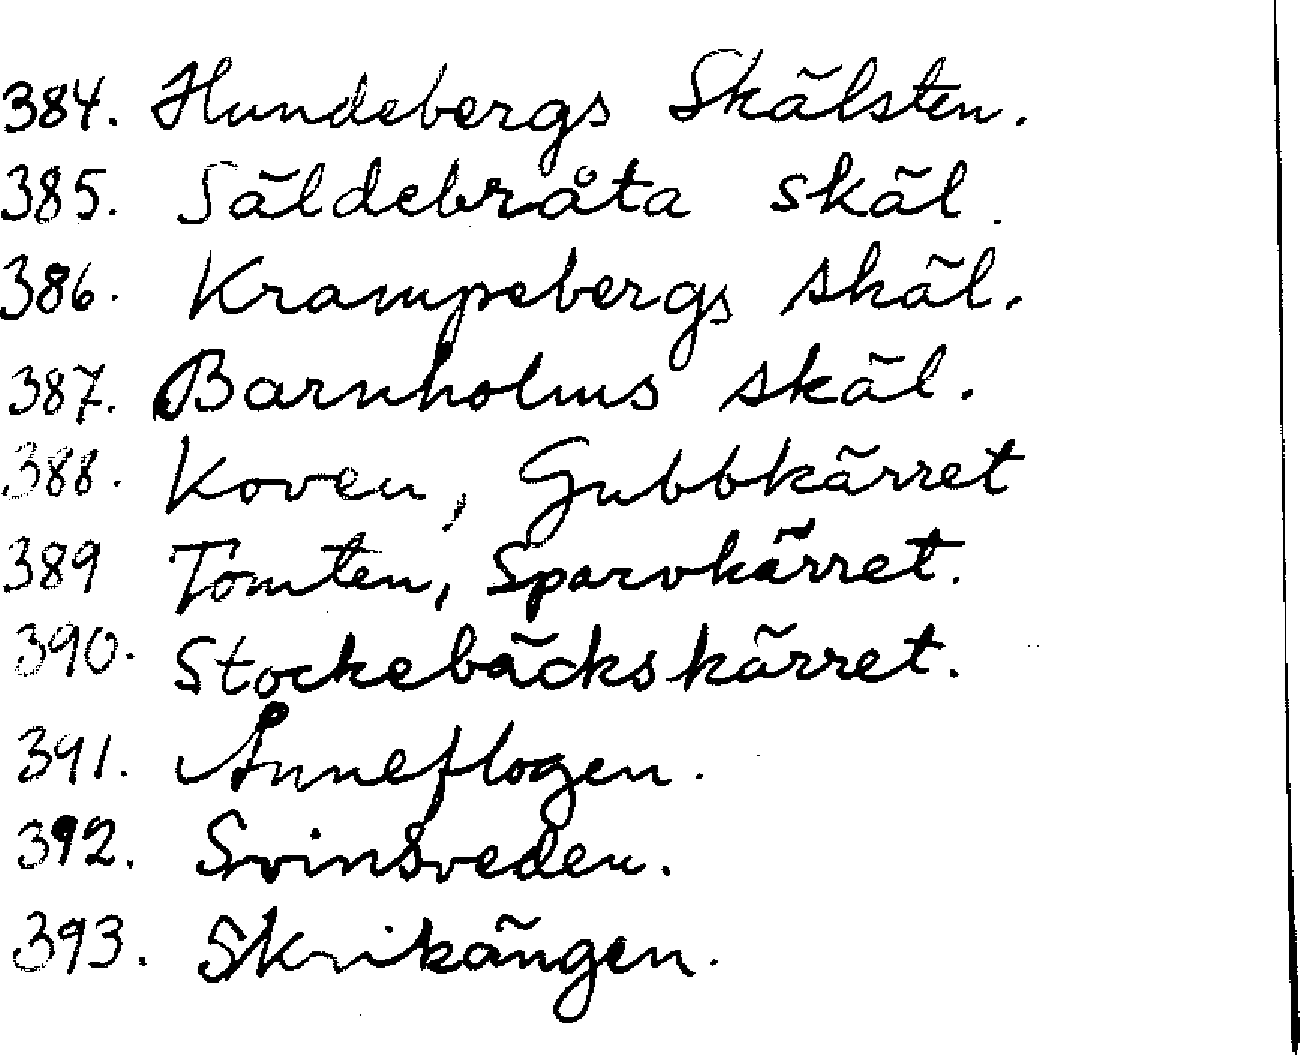 384. Hundebergs Skälsten.
385. Säldebråta skäl.
386. Krampebergs skäl.
387. Barnholms skäl.
388. Koven, Gubbkärret
389 Tomten, Sparvkärret.
390. Stockebäckskärret.
391. Ånneflogen.
392. Svinsveden.
393. Skrikängen.